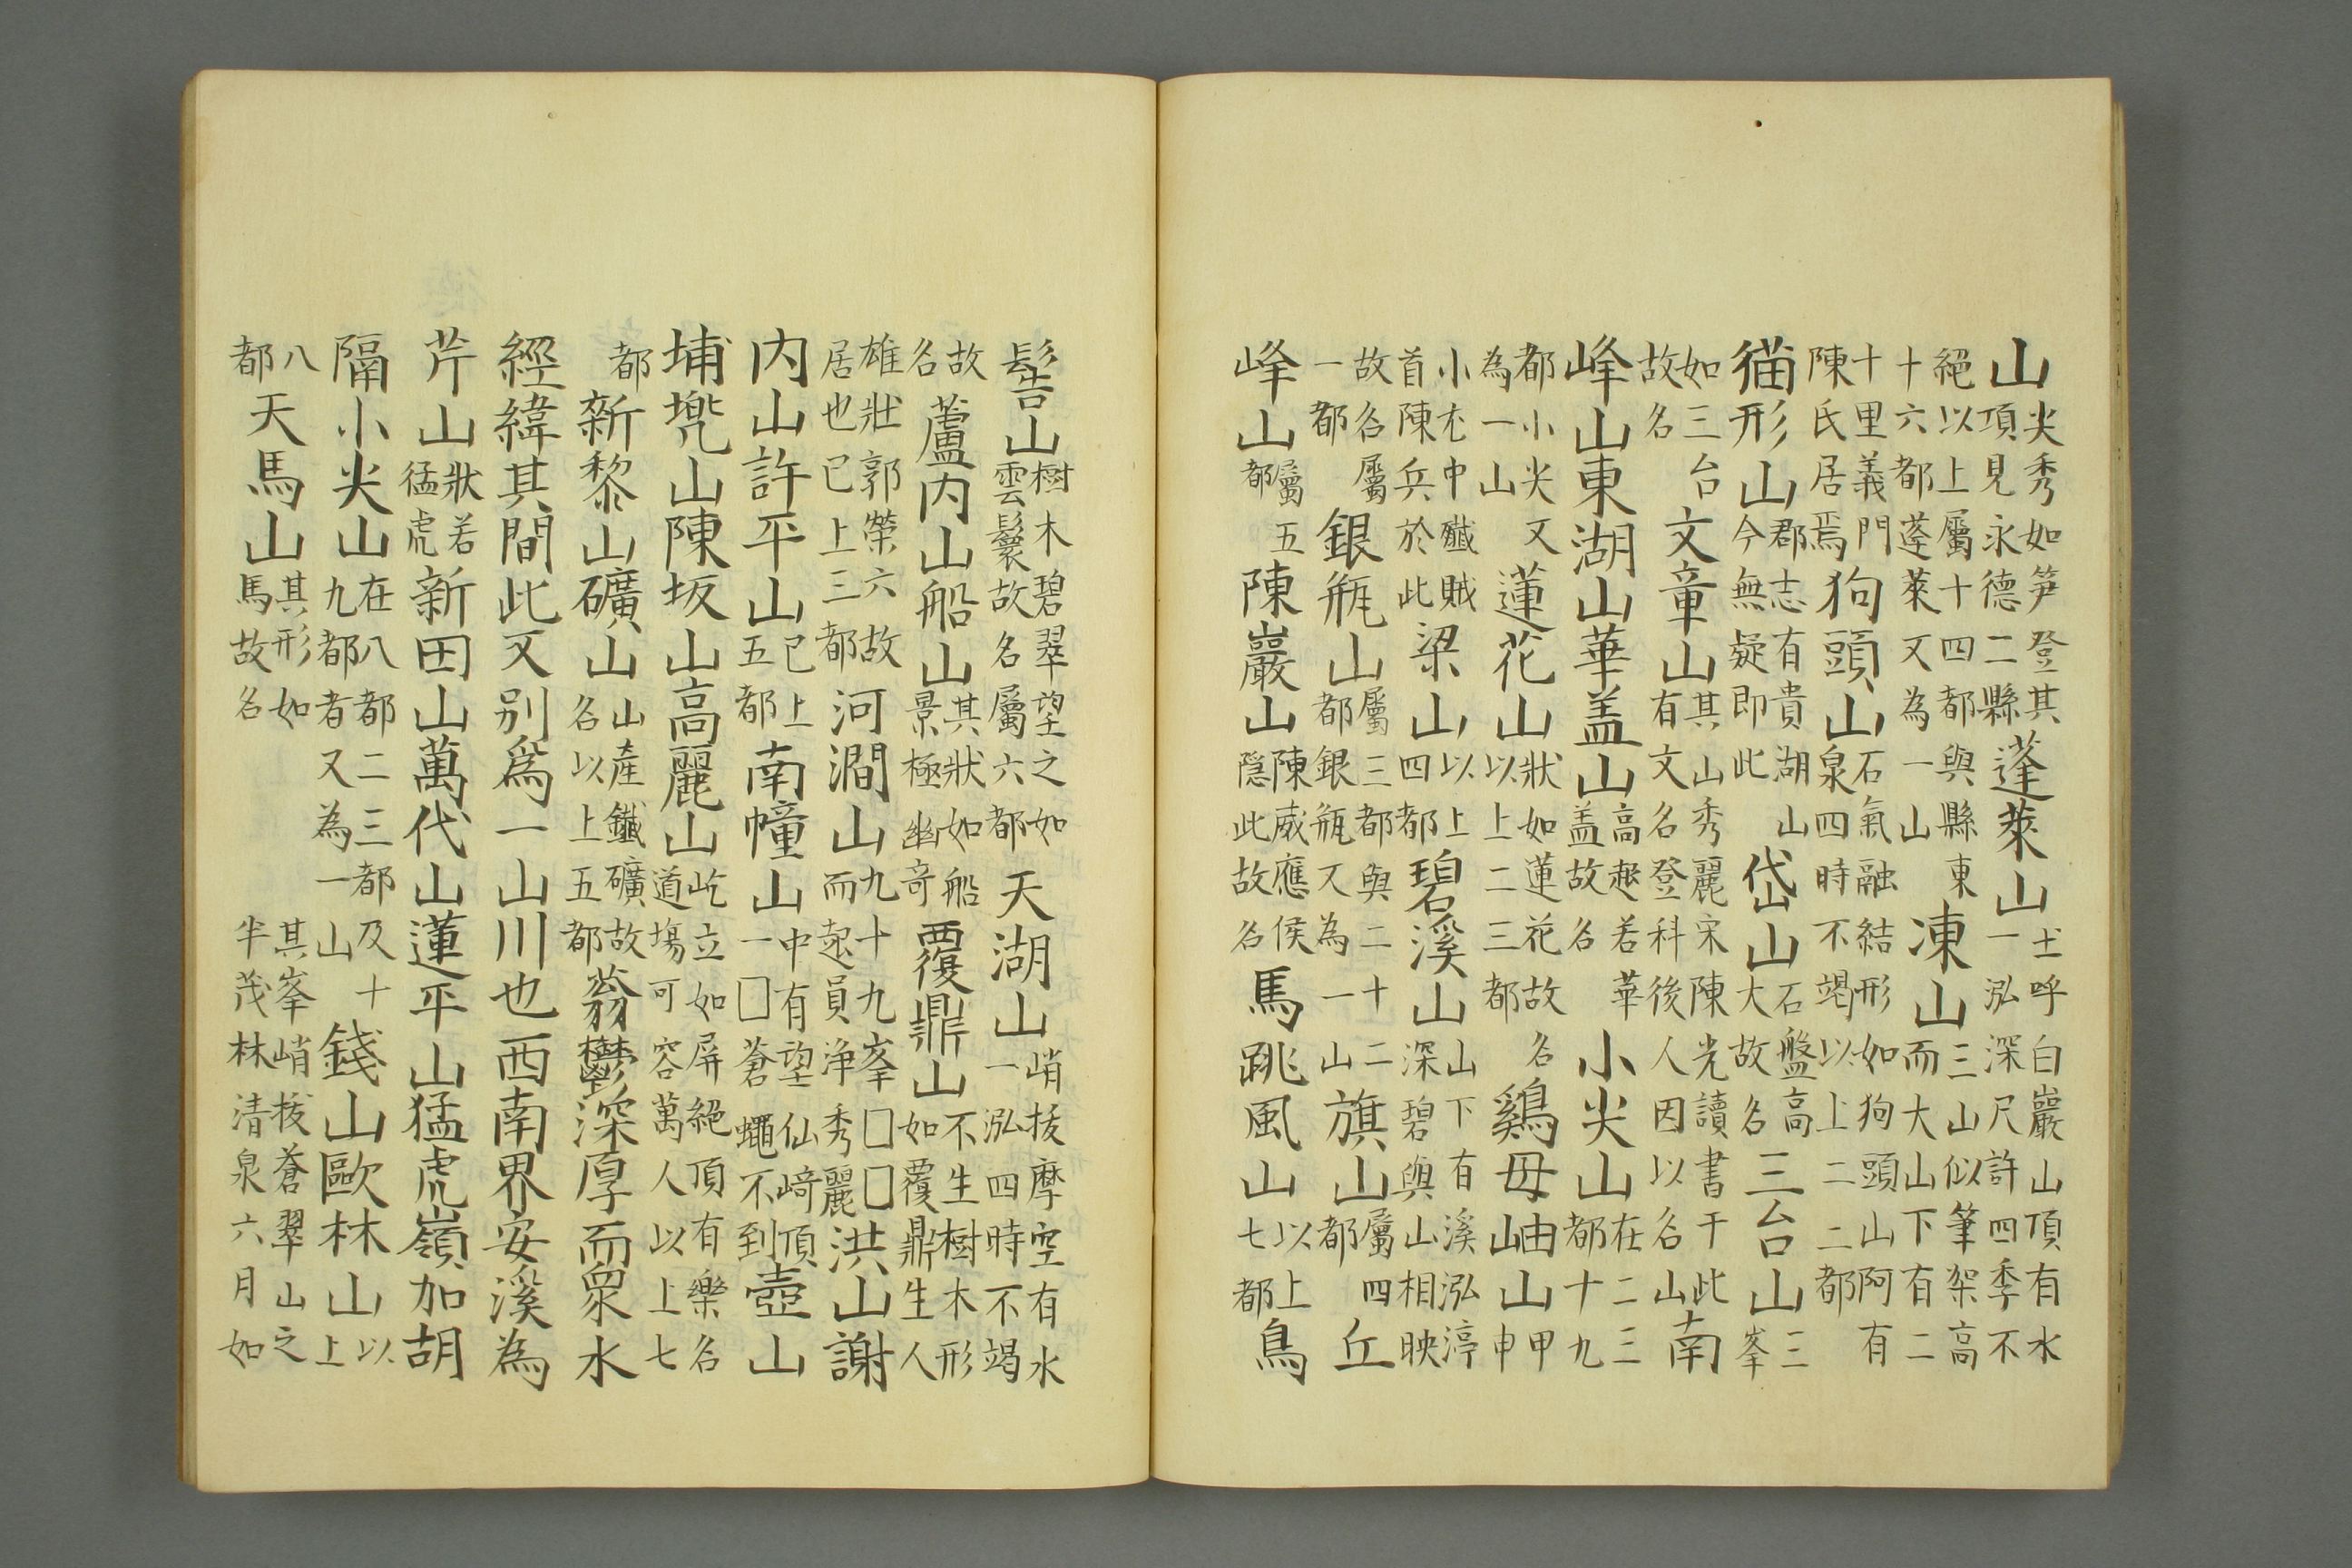 山尖秀如笋登其頂見永德二縣蓬萊山土呼白巖山頂有水一泓深尺許四季不
絕以上屬十四都與縣東十六都蓬萊又為一山凍山三山似筆架高而大山下有二
十里義門陳氏居焉狗頭山石氣融結形如狗頭山阿有泉四時不竭以上二二都
猫形山郡志有貴湖山今無疑即此岱山石盤高大故名三台山三峯
如三台故名文章山其山秀麗宋陳光讀書干此有文名登科後人因以名山南
峰山東湖山華盖山高趣若華盖故名小尖山在二三都十九
都小尖又為一山蓮花山狀如蓮花故名以上二三都鷄母岫山甲申
小冘中殲賊首陳兵於此梁山以上四都碧溪山山下有溪泓渟深碧與山相映
故名屬一都銀瓶山屬三都與二十二都銀瓶又為一山旗山屬四都丘
峰山屬五都陳巖山陳威應侯隐此故名馬跳風山以上七都鳥
髻山樹木碧翠望之如雲鬟故名屬六都天湖山峭拔摩空有水一泓四時不竭
故名蘆内山船山其狀如船景極幽奇覆鼎山不生樹木形如覆鼎生人
雄壯郭榮六故居也已上三都河澗山九十九峯□□而起員净秀麗洪山謝
内山許平山已上五都南幢山中有望仙﨑頂一□蒼蠅不到壺山
埔兠山陳坂山高麗山屹立如屏絕頂有樂名道塲可容萬人以上七
都新黎山礦山山產鐵礦故名以上五都蓊鬱深厚而衆水
經緯其間此又别爲一山川也西南界安溪為
芹山狀若猛虎新田山萬代山蓮平山猛虎嶺加胡
隔小尖山在八都二三都及十九都者又為一山錢山歐林山以上
八都天馬山其形如馬故名其峯峭拔蒼翠山之半茂林清泉六月如